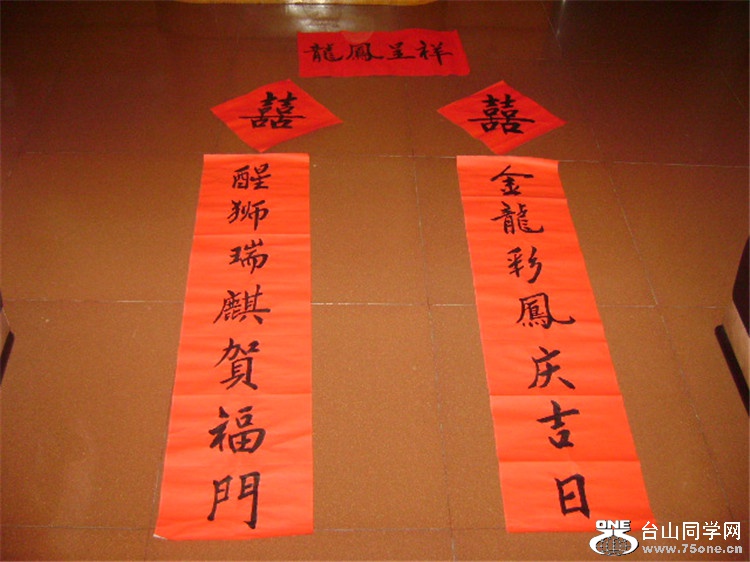 龍鳳呈祥
囍
囍
金龍彩鳳庆吉日
醒狮瑞麒賀福門
ONE
台山同学网
www.75one.cn